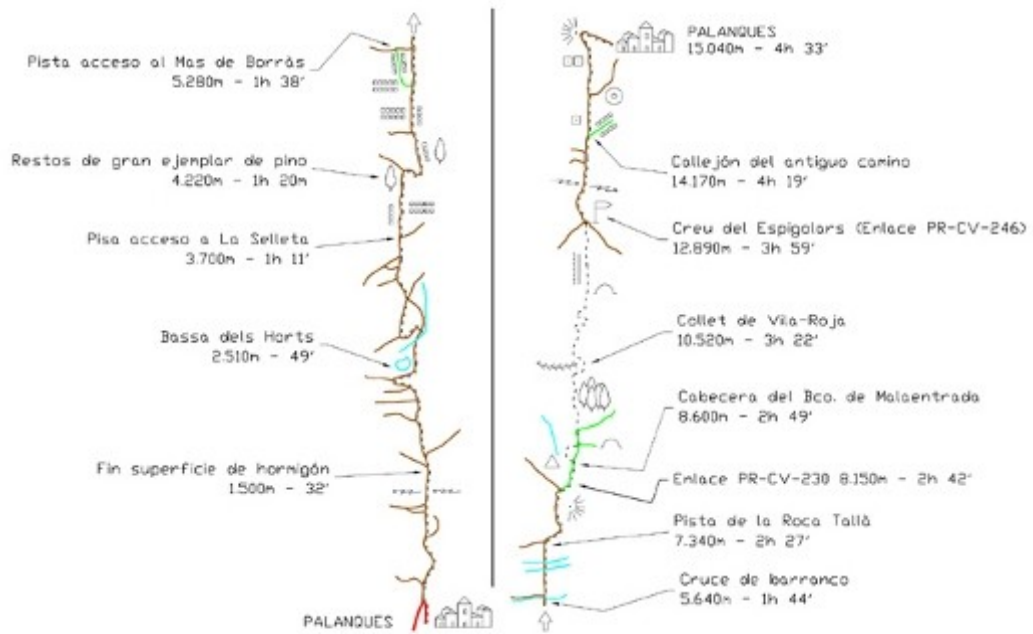 Pista acceso al Mas de Borràs
5.280m - 1h 38'
Restos de gran ejemplar de pino
4.220m - 1h 20m
Pisa acceso a La Selleta
3.700m - 1h 11'
Bassa dels Horts
2.510m - 49'
Fin superficie de hormigón
1.500m - 32'
PALANQUES
PALANQUES
15.040m - 4h 33'
Callejón del antiguo camino
14.170m - 4h 19'
Creu del Espigolars (Enlace PR-CV-246)
12.890m - 3h 59'
Collet de Vila-Roja
10.520m - 3h 22'
Cabecera del Bco. de Malaentrada
8.600m - 2h 49'
Enlace PR-CV-230 8.150m - 2h 42'
Pista de la Roca Tallà
7.340m - 2h 27'
Cruce de barranco
5.640m - 1h 44'